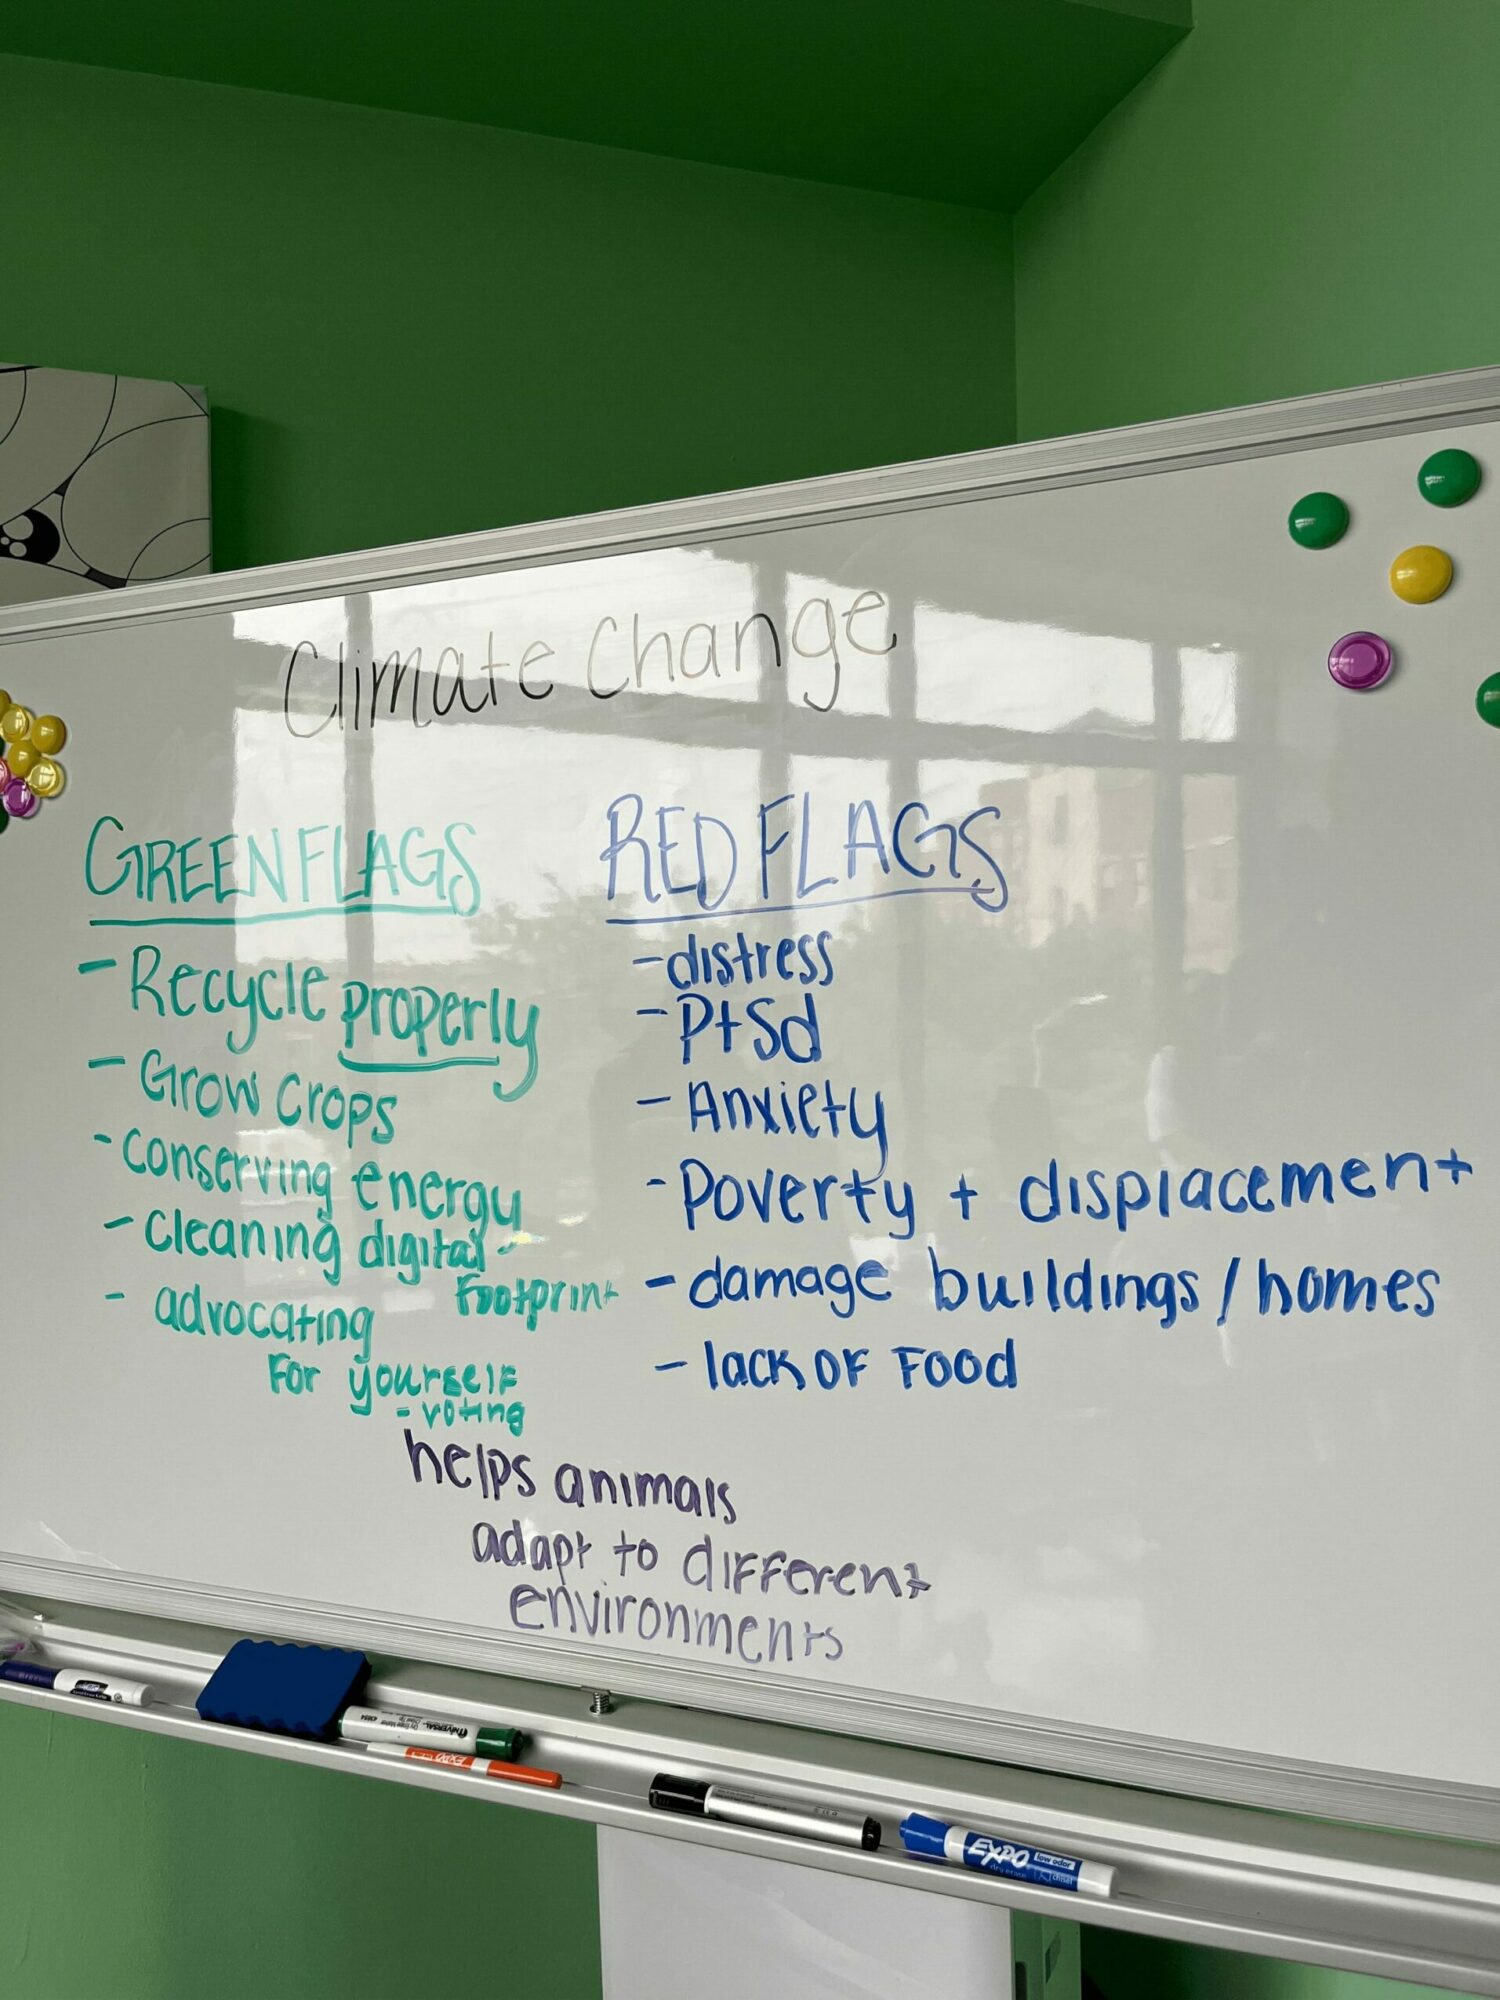 Climate Change
GREEN FLAGS
- Recycle properly
- Grow crops
- conserving energy
- cleaning digital
footprint
- advocating
for yourself
- voting
RED FLAGS
- distress
- PtSd
- Anxiety
- Poverty + displacement
- damage buildings / homes
- lack of food
helps animals
adapt to different
environments
UNIVERSAL
EXPO
EXPO
low odor
dry erase